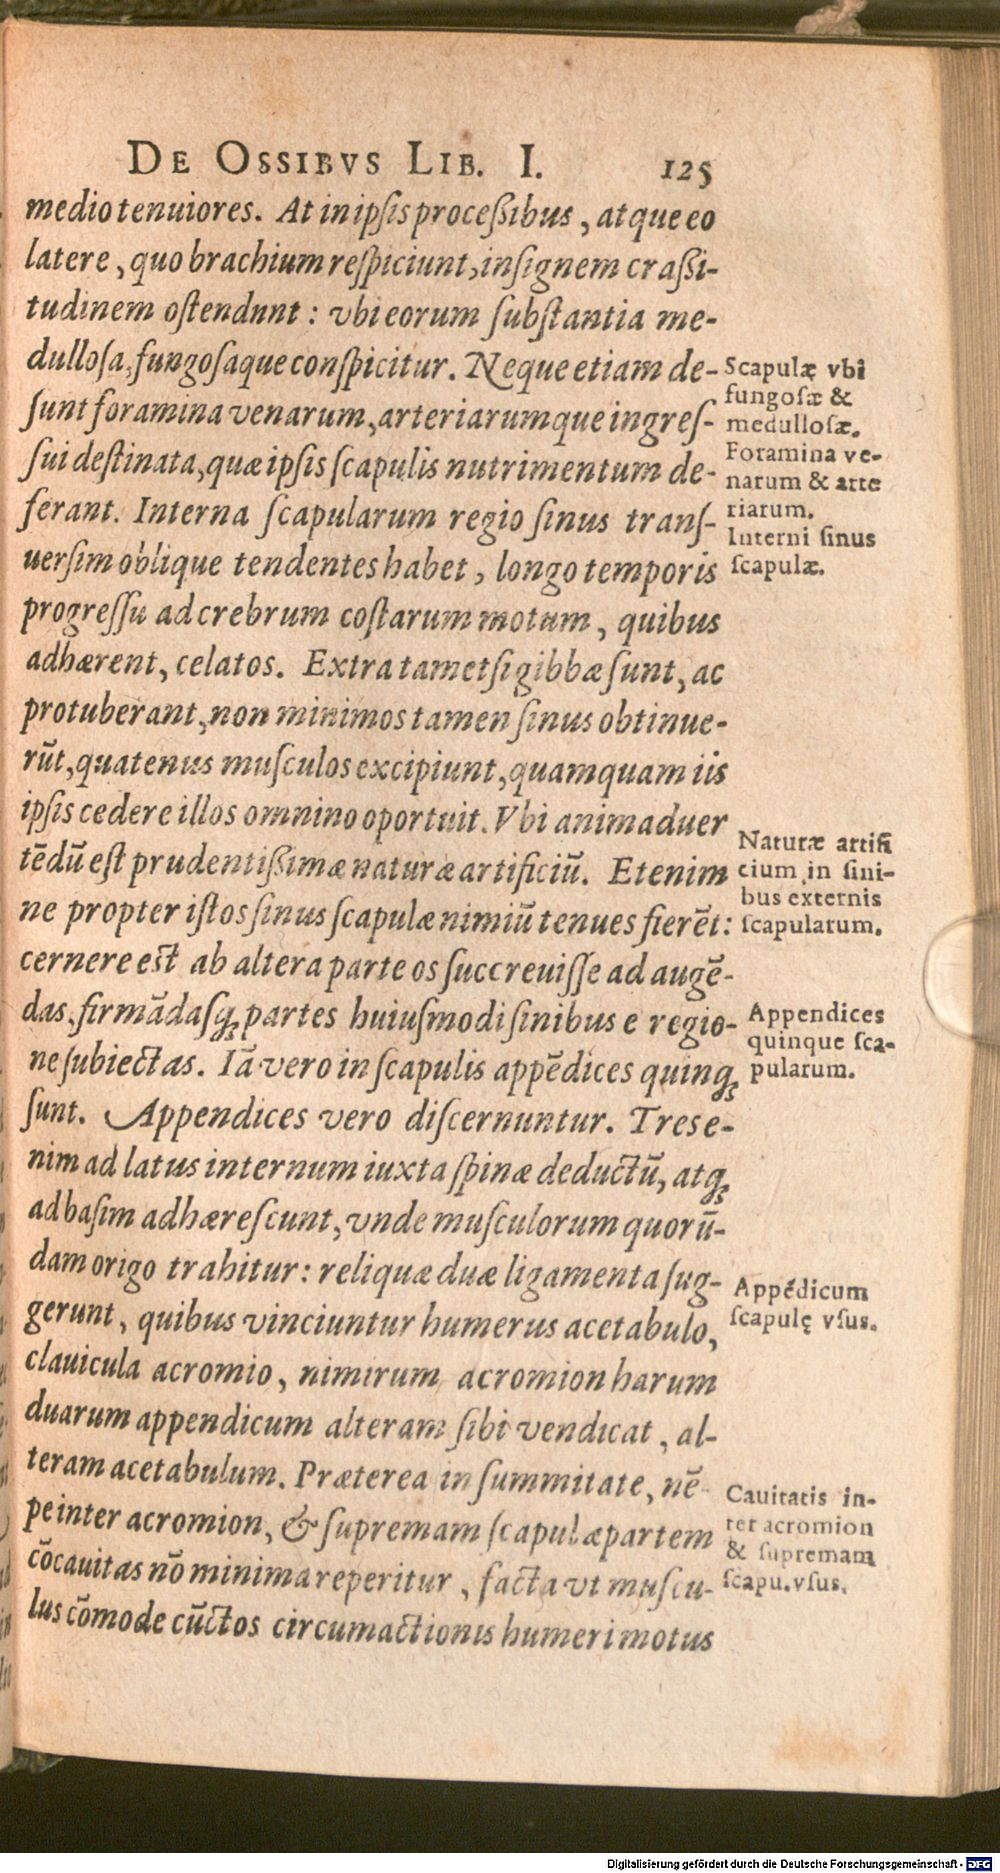 DE OSSIBVS LIB. I. 125
medio tenuiores. At in ipſis proceßibus, atque eo
latere, quo brachium reſpiciunt, inſignem craßi-
tudinem oſtendunt: vbi eorum ſubſtantia me-
dulloſa, fungoſaque conſpicitur. Neque etiam de-
ſunt foramina venarum, arteriarumque ingreſ-
ſui deſtinata, quæ ipſis ſcapulis nutrimentum de-
ferant. Interna ſcapularum regio ſinus tranſ-
uerſim oblique tendentes habet, longo temporis
progreſſu ad crebrum coſtarum motum, quibus
adhærent, celatos. Extra tametſi gibbæ ſunt, ac
protuberant, non minimos tamen ſinus obtinue-
rūt, quatenus muſculos excipiunt, quamquam iis
ipſis cedere illos omnino oportuit. Vbi animaduer
tēdū eſt prudentißimæ naturæ artificiū. Etenim
ne propter iſtos ſinus ſcapulæ nimiū tenues fierēt:
cernere est ab altera parte os ſuccreuiſſe ad augē-
das, firmādaſq; partes huiuſmodi ſinibus e regio-
ne ſubiectas. Iā vero in ſcapulis appēdices quinq;
ſunt. Appendices vero diſcernuntur. Tres e-
nim ad latus internum iuxta ſpinæ deductū, atq;
ad baſim adhæreſcunt, vnde muſculorum quorū-
dam origo trahitur: reliquæ duæ ligamenta ſug-
gerunt, quibus vinciuntur humerus acetabulo,
clauicula acromio, nimirum acromion harum
duarum appendicum alteram ſibi vendicat, al-
teram acetabulum. Præterea in ſummitate, nē-
pe inter acromion, & ſupremam ſcapulæ partem
cōcauitas nō minima reperitur, facta vt muſcu-
lus cōmode cūctos circumactionis humeri motus
Scapulæ vbi
fungoſæ &
medulloſæ.
Foramina ve-
narum & arte
riarum.
Interni ſinus
ſcapulæ.
Naturæ artifi
cium in ſini-
bus externis
ſcapularum.
Appendices
quinque ſca-
pularum.
Appēdicum
ſcapulę vſus.
Cauitatis in-
ter acromion
& ſupremam
ſcapu. vſus.
Digitalisierung gefördert durch die Deutsche Forschungsgemeinschaft - DFG